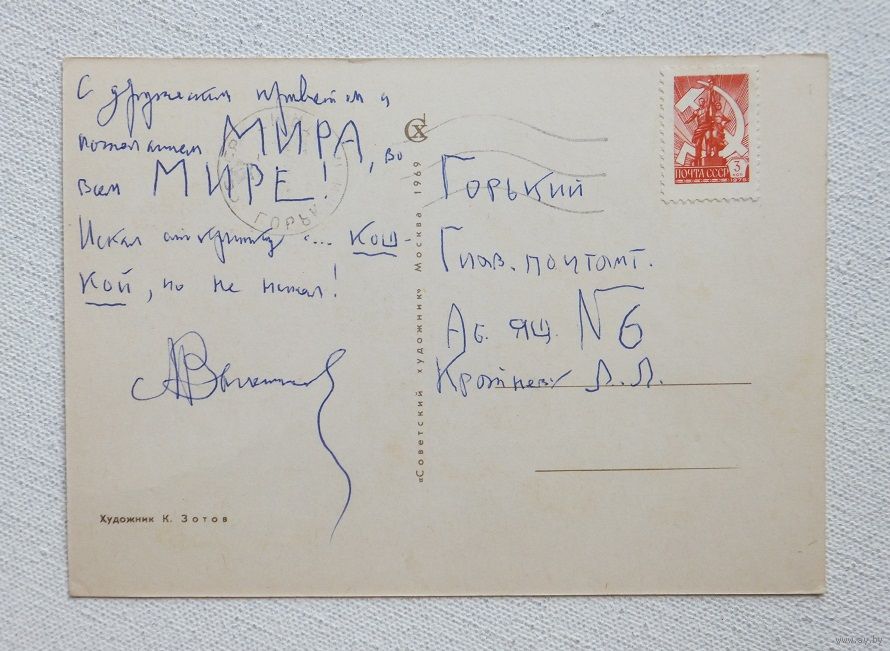 С дружеским приветом и
пожеланием МИРА, во
всем МИРЕ!
Искал открытку с... КОШ-
КОЙ, но не нашел!
Художник К. Зотов
«Советский художник» Москва 1969
ПОЧТА СССР
3
КОП
1976
ГОРЬКИЙ
Горький
Глав. почтамт.
Аб. ящ. № 6
Л.Л.
www.ay.by